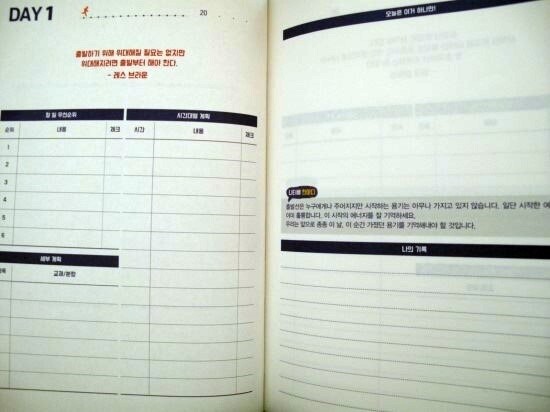 DAY 1
20
출발하기 위해 위대해질 필요는 없지만
위대해지려면 출발부터 해야 한다.
- 레스 브라운
할 일 우선순위
순위 내용 체크
1
2
3
4
5
6
세부 계획
과목 교재/분량
시간대별 계획
시간 내용 체크
오늘은 이거 하나만!
한마디
출발선은 누구에게나 주어지지만 시작하는 용기는 아무나 가지고 있지 않습니다. 일단 시작한 여
이미 훌륭합니다. 이 시작의 에너지를 잘 기억하세요.
우리는 앞으로 종종 이 날, 이 순간 가졌던 용기를 기억해내야 할 것입니다.
나의 기록